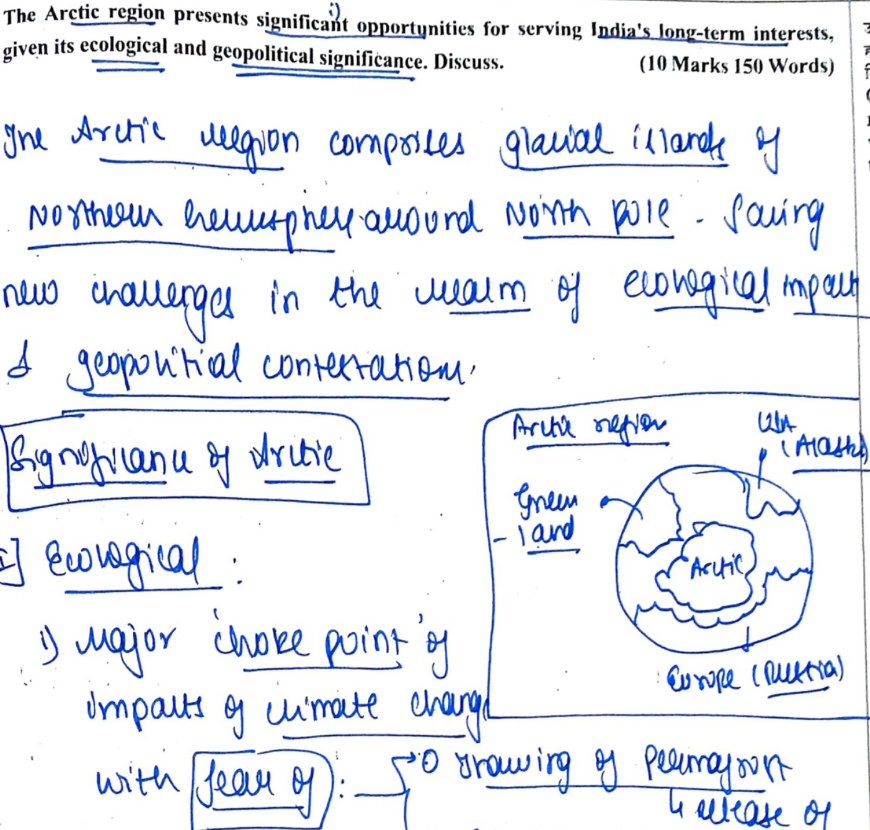 The Arctic region presents significant opportunities for serving India's long-term interests,
i)
given its ecological and geopolitical significance. Discuss. (10 Marks 150 Words)
The Arctic region comprises glacial islands of
Northern hemisphere around North pole - facing
new challenges in the realm of ecological impact
& geopolitical contestation.
Significance of Arctic
I] Ecological :
1) Major 'choke point' of
impacts of climate change
with fear of :
Arctic region
USA
(Alaska)
Green
- land
Arctic
Europe (Russia)
Thawing of Permafrost
↳ release of